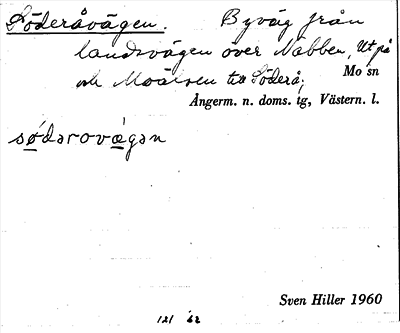 Söderåvägen. Byväg från
landsvägen över Nabben, Ut på
och Moåisen till Söderå;
Mo sn
Ångerm. n. doms. tg, Västern. l.
sǿdərovǽgən
Sven Hiller 1960
121 62